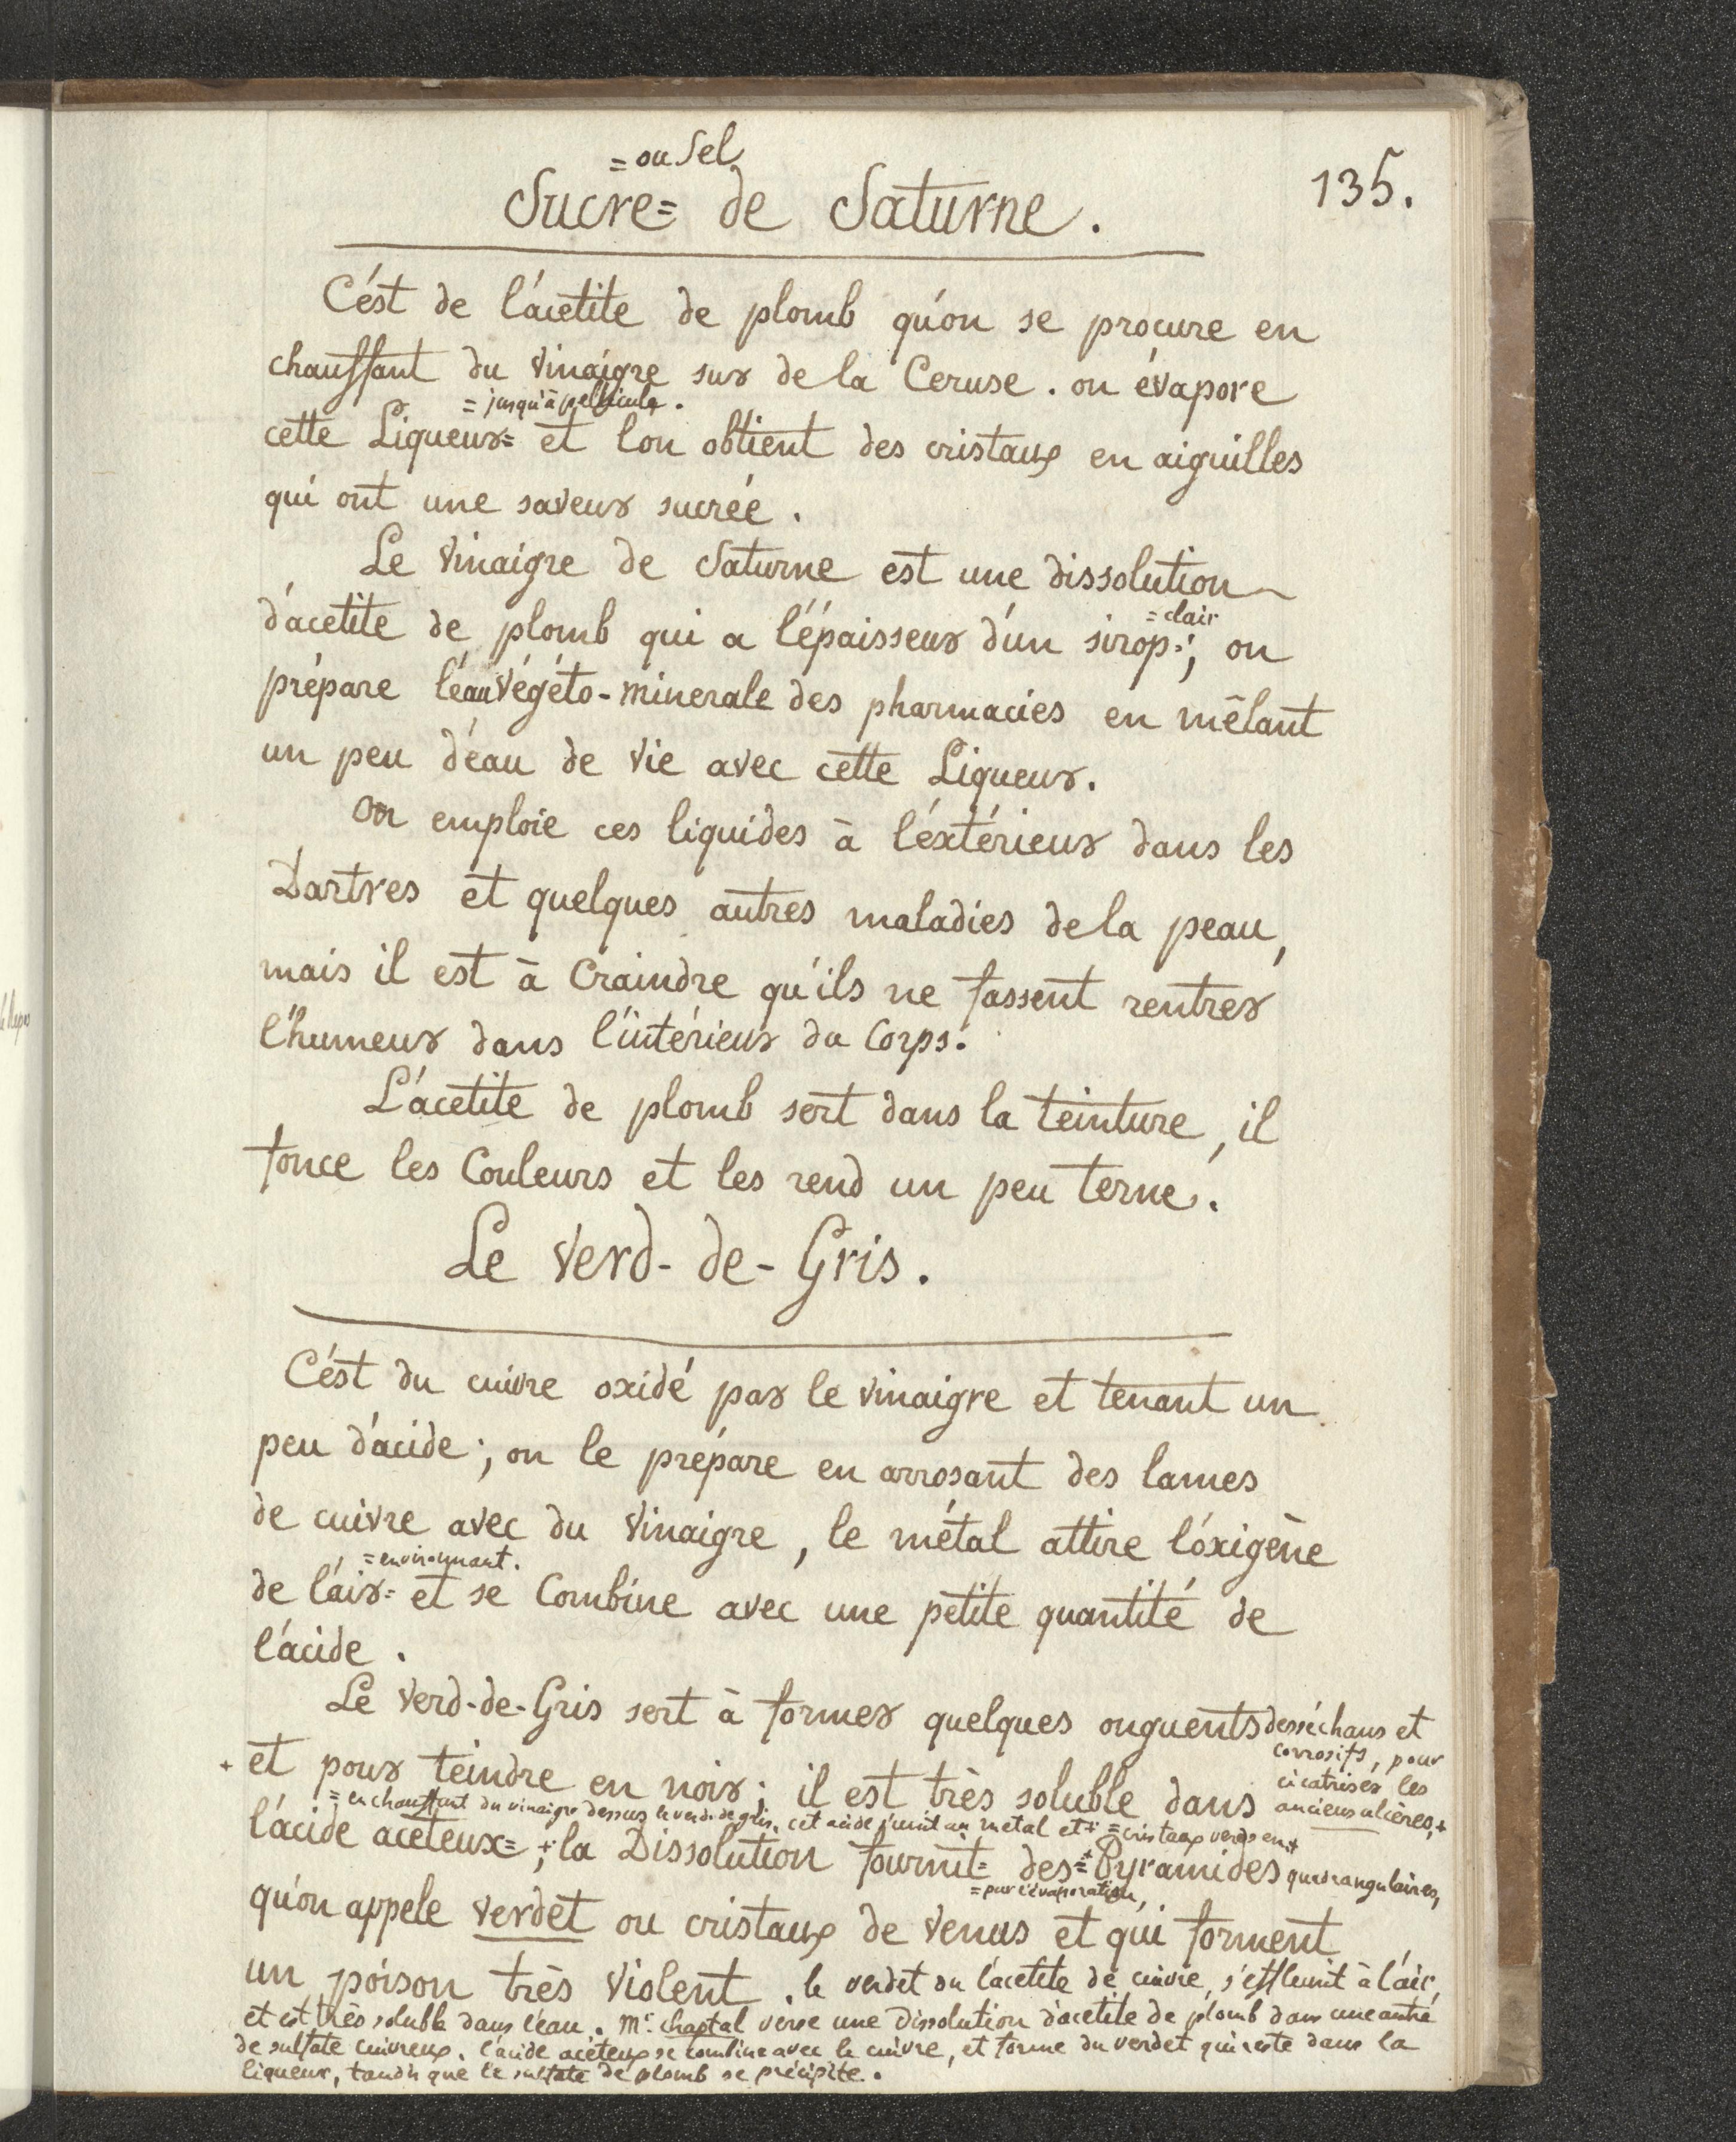 135.
= ou Sel
Sucre= de Saturne.
C'est de l'acetite de plomb qu'on se procure en
chauffant du vinaigre sur de la Ceruse. on évapore
= jusqu'à pellicule.
cette Liqueur= et l'on obtient des cristaux en aiguilles
qui ont une saveur sucrée.
Le vinaigre de Saturne est une dissolution
= clair
d'acetite de plomb qui a l'épaisseur d'un sirop=; on
prépare l'eau végéto-minerale des pharmacies en mêlant
un peu d'eau de vie avec cette Liqueur.
on emploie ces liquides à l'éxtérieur dans les
Dartres et quelques autres maladies de la peau,
mais il est à Craindre qu'ils ne fassent rentrer
l'humeur dans l'intérieur du Corps.
L'acetite de plomb sert dans la teinture, il
fonce les Couleurs et les rend un peu terne.
Le Verd-de-Gris.
C'est du cuivre oxidé par le vinaigre et tenant un
peu d'acide; on le prépare en arrosant des lames
de cuivre avec du Vinaigre, le métal attire l'oxigène
= environnant.
de l'air= et se Combine avec une petite quantité de
l'acide.
Le Verd-de-Gris sert à former quelques onguents desséchans et
corrosifs, pour
cicatriser les
anciens ulcères,+
+ et pour teindre en noir; il est très soluble dans
= en chauffant du vinaigre dessus le verd-de-gris, cet acide s'unit au metal et+ = cristaux verds en+
l'acide aceteux= ;+ la Dissolution fournit= des=+ Pyramides quadrangulaires,
= par l'évaporation,
qu'on appele verdet ou cristaux de Venus et qui forment
un poison très Violent. le verdet ou l'acetite de cuivre, s'effleurit à l'air,
et est très soluble dans l'eau. Mr. chaptal verse une Dissolution d'acetite de plomb dans une autre
de sulfate cuivreux. l'acide acéteux se combine avec le cuivre, et forme du verdet qui reste dans la
liqueur, tandis que le sulfate de plomb se précipite.